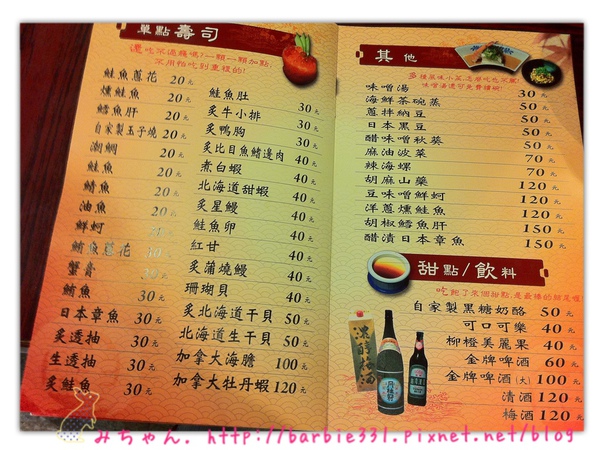 單點 壽司
還吃不過癮嗎?一顆一顆加點,
不用怕吃到重複的!
鮭魚蔥花 20元
燻鮭魚 20元
鱈魚肝 20元
自家製玉子燒 20元
潮鯛 20元
鮭魚 20元
鯖魚 20元
油魚 20元
鮮蚵 20元
鮪魚蔥花 30元
蟹膏 30元
鮪魚 30元
日本章魚 30元
炙透抽 30元
生透抽 30元
炙鮭魚 30元
鮭魚肚 30元
炙牛小排 30元
炙鴨胸 30元
炙比目魚鰭邊肉 40元
煮白蝦 40元
北海道甜蝦 40元
炙星鰻 40元
鮭魚卵 40元
紅甘 40元
炙蒲燒鰻 40元
珊瑚貝 40元
炙北海道生干貝 50元
北海道生干貝 50元
加拿大海膽 100元
加拿大牡丹蝦 120元
其他
味噌湯 30元
海鮮茶碗蒸 50元
蔥拌納豆 50元
日本黑豆 50元
醋味噌秋葵 50元
麻油波菜 70元
辣海螺 70元
胡麻山藥 120元
豆味噌鮮蚵 120元
洋蔥燻鮭魚 120元
胡椒鱈魚肝 150元
醋漬日本章魚 150元
甜點/飲料
自家製黑糖奶酪 50元
可口可樂 40元
柳橙美麗果 40元
金牌啤酒 60元
金牌啤酒(大) 100元
清酒 120元
梅酒 120元
みちゃん. http://barbie331.pixnet.net/blog